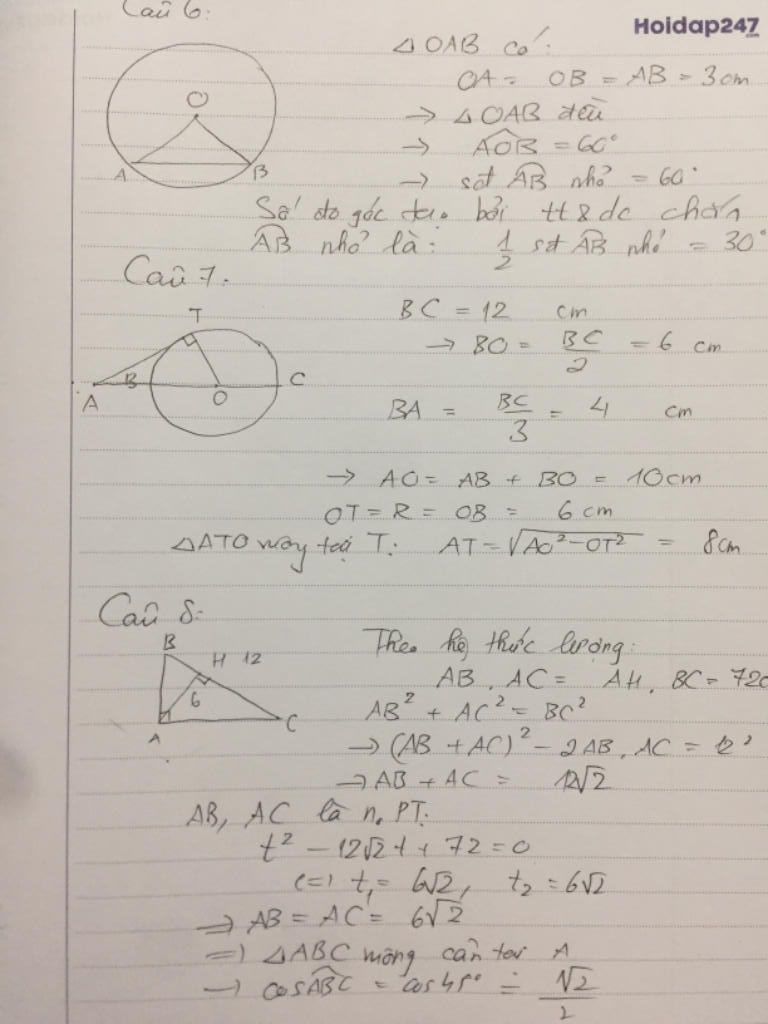 Câu 6:
Hoidap247.com
△OAB có:
OA = OB = AB = 3cm
→ △OAB đều
→ AOB = 60°
→ sđ AB nhỏ = 60°
Số đo góc tạo bởi tt & dc chắn
AB nhỏ là: 1/2 sđ AB nhỏ = 30°
O
A B
Câu 7:
BC = 12 cm
→ BO = BC/2 = 6 cm
BA = BC/3 = 4 cm
T
A B O C
→ AO = AB + BO = 10cm
OT = R = OB = 6 cm
△ATO vuông tại T: AT = √AO² - OT² = 8cm
Câu 8:
B
H 12
6
A C
Theo hệ thức lượng:
AB . AC = AH . BC = 72
AB² + AC² = BC²
→ (AB + AC)² - 2AB . AC = 12²
→ AB + AC = 12√2
AB, AC là n. PT:
t² - 12√2t + 72 = 0
(=) t₁ = 6√2, t₂ = 6√2
⇒ AB = AC = 6√2
=) △ABC vuông cân tại A
→ cosABC = cos45° = √2/2